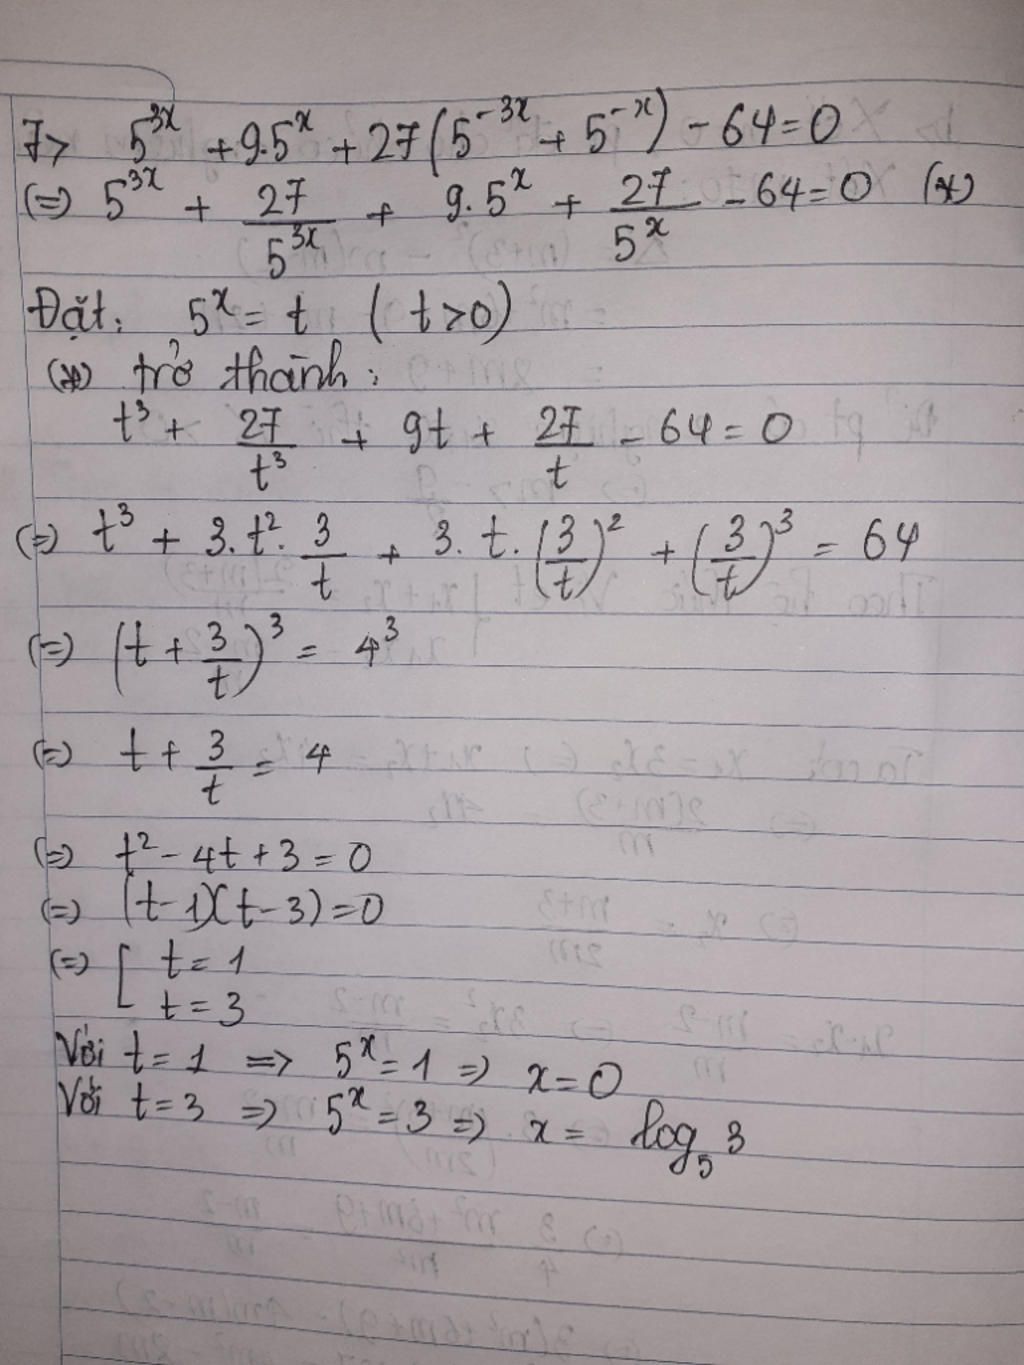 7> 5^{3x} + 9.5^x + 27(5^{-3x} + 5^{-x}) - 64 = 0
(=) 5^{3x} + 27/5^{3x} + 9.5^x + 27/5^x - 64 = 0 (*)
Đặt: 5^x = t (t>0)
(*) trở thành:
t^3 + 27/t^3 + 9t + 27/t - 64 = 0
(=) t^3 + 3.t^2.3/t + 3.t.(3/t)^2 + (3/t)^3 = 64
(=) (t + 3/t)^3 = 4^3
(=) t + 3/t = 4
(=) t^2 - 4t + 3 = 0
(=) (t-1)(t-3) = 0
(=) [ t = 1
t = 3
Với t = 1 => 5^x = 1 => x = 0
Với t = 3 => 5^x = 3 => x = log_5 3